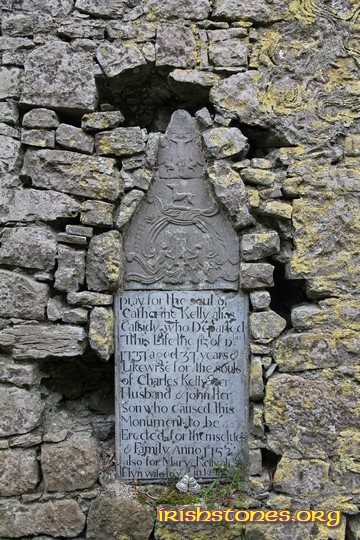 pray for the soul of
Catharine Kelly alias
Cassidy who Departed
This life the 15 of
1751 aged 37 years &
Likewise for the souls
of Charles Kelly her
Husband & John Her
Son who Caused This
Monument to be
Erected for themselves
& Family Anno 1752
also for Mary Kelly
Flyn wife to
irishstones.org